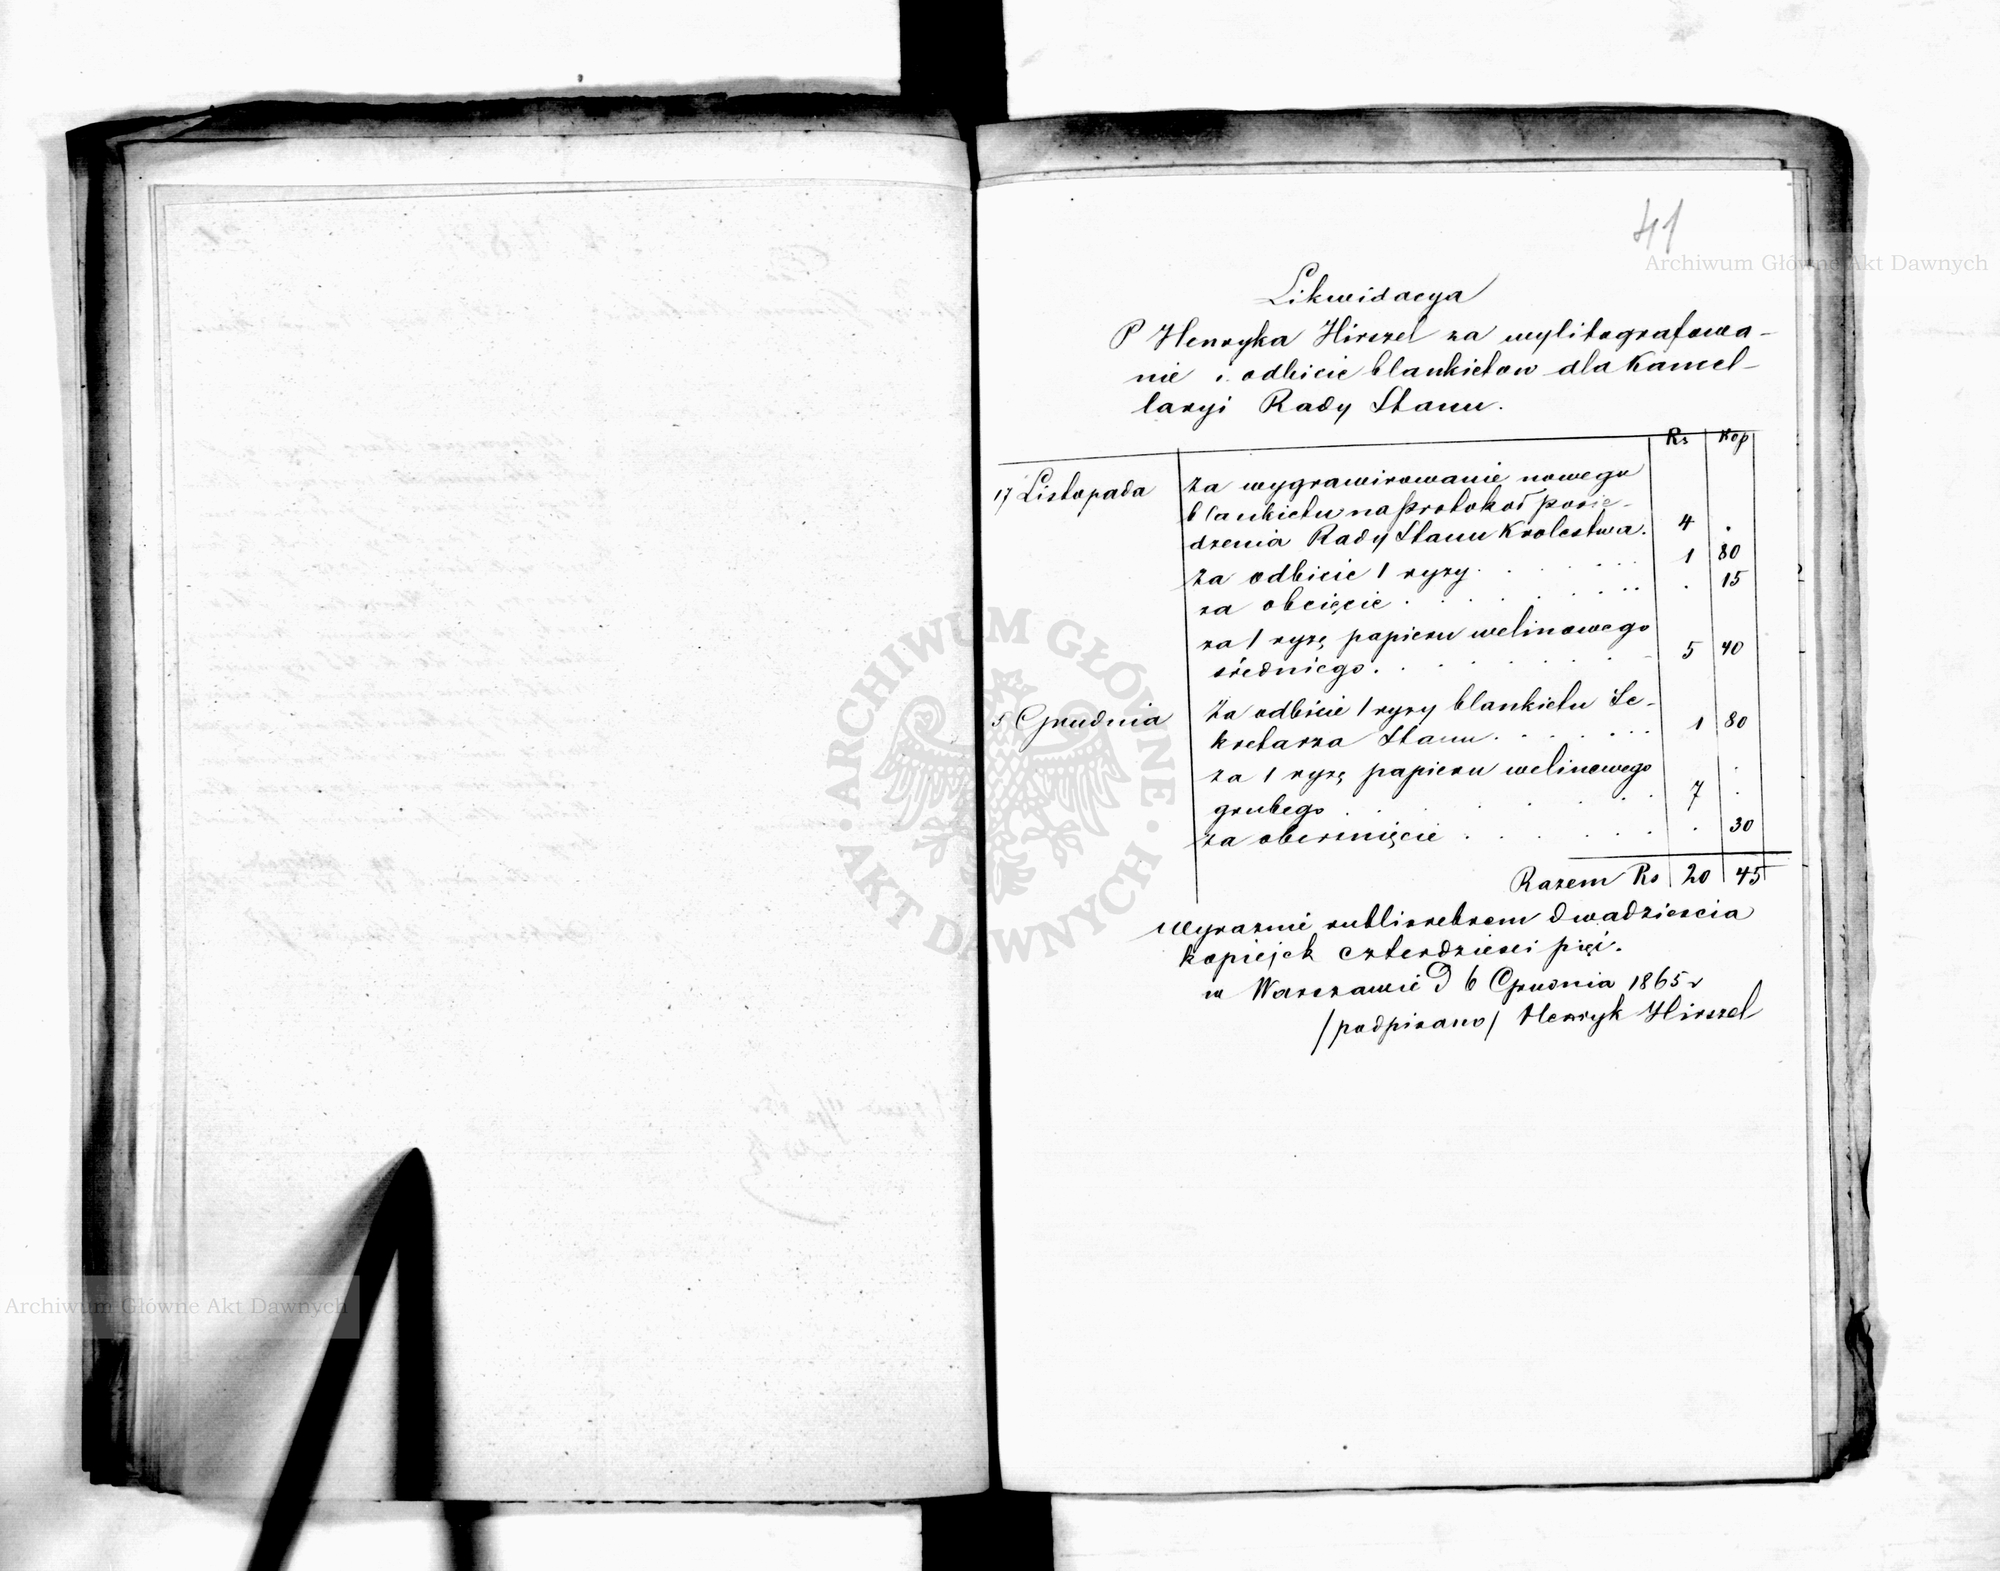 41
Archiwum Główne Akt Dawnych
Likwidacya
P Henryka Hirszel za wylitografowa-
nie i odbicie blankietow dla Kancel-
laryi Rady Stanu.
Rs Kop
17 Listopada za wygrawirowanie nowego
blankietu na protokoł posie-
dzenia Rady Stanu Krolestwa. 4 .
za odbicie 1 ryzy . . . . . . 1 80
za obcięcie . . . . . . . . . 15
za 1 ryzę papieru welinowego
średniego . . . . . . . 5 40
5 Grudnia za odbicie 1 ryzy blankietu Se-
kretarza Stanu . . . . . . 1 80
za 1 ryzę papieru welinowego
grubego . . . . . . . 7 .
za oberznięcie . . . . . . . 30
Razem Rs 20 45
Wyraznie rublisrebrem dwadziescia
kopiejek czterdziesci pięć.
w Warszawie D 6 Grudnia 1865 r
/podpisano/ Henryk Hirszel
ARCHIWUM GŁÓWNE
· AKT DAWNYCH ·
Archiwum Główne Akt Dawnych